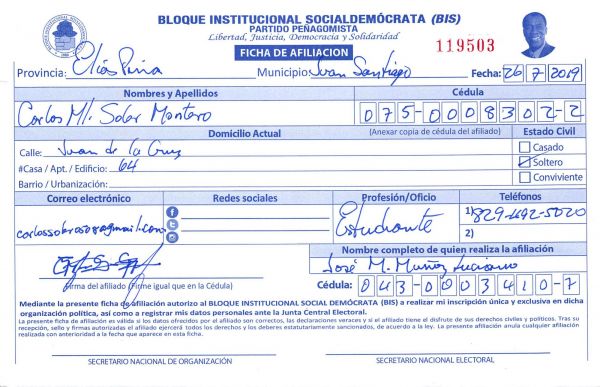 BLOQUE INSTITUCIONAL SOCIALDEMÓCRATA (BIS)
PARTIDO PEÑAGOMISTA
Libertad, Justicia, Democracia y Solidaridad
FICHA DE AFILIACION
119503
Provincia: Elías Piña Municipio: Juan Santiago Fecha: 26/7/2019
Nombres y Apellidos Cédula
Carlos Ml. Soler Montero 075-0008302-2
Domicilio Actual (Anexar copia de cédula del afiliado) Estado Civil
Calle: Juan de la Cruz Casado
#Casa / Apt. / Edificio: 64 Soltero
Barrio / Urbanización: Conviviente
Correo electrónico Redes sociales Profesión/Oficio Teléfonos
1) 829-492-5020
Estudiante 2)
Nombre completo de quien realiza la afiliación
José M. Muñoz Luciano
Firma del afiliado (Firme igual que en la Cédula) Cédula: 043-0003410-7
Mediante la presente ficha de afiliación autorizo al BLOQUE INSTITUCIONAL SOCIAL DEMÓCRATA (BIS) a realizar mi inscripción única y exclusiva en dicha
organización política, así como a registrar mis datos personales ante la Junta Central Electoral.
La presente ficha de afiliación es válida si los datos ofrecidos por el afiliado son correctos, las declaraciones veraces y si el afiliado tiene el disfrute de sus derechos civiles y políticos. Tras su
recepción, sello y firmas autorizadas el afiliado ejercerá todos los derechos y los deberes estatutariamente sancionados, de acuerdo a la ley. La presente afiliación anula cualquier afiliación
realizada con anterioridad a la fecha que aparece en esta ficha.
SECRETARIO NACIONAL DE ORGANIZACIÓN SECRETARIO NACIONAL ELECTORAL